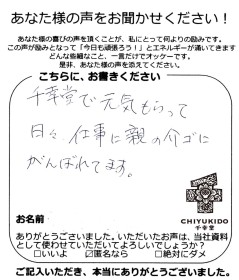 あなた様の声をお聞かせください!
あなた様の喜びの声を頂くことが、私にとって何よりの励みです。
この声が励みとなって「今日も頑張ろう!」とエネルギーが湧いてきます
どんな些細なこと、一言だけでオッケーです。
是非、あなた様の声を添えてください。
こちらに、お書きください
千幸堂で元気もらって
日々仕事に親の介ゴに
がんばれてます。
CHIYUKIDO
千幸堂
お名前
ありがとうございました。いただいたお声は、当社資料
として使わせていただいてよろしいでしょうか?
□いいよ ☑匿名なら □絶対にダメ
ご記入いただき、本当にありがとうございました。